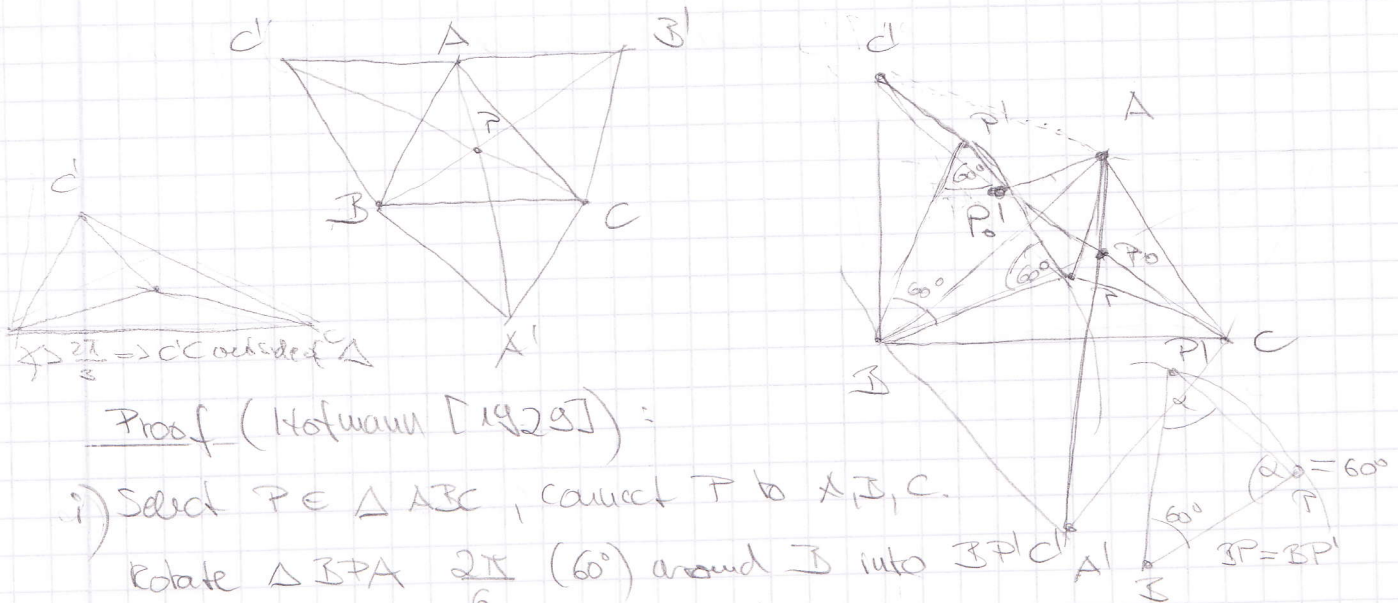 C' A B'
P
B C
A'
C'
C
∡ > 2π/3 => C'C outside of Δ
C'
P' A
60°
P₀'
60° 60° P₀
P
B C
P'
α
α = 60°
60° P
A' B BP = BP'
Proof (Hofmann [1929]):
i) Select P ∈ Δ ABC, connect P to A, B, C.
Rotate Δ BPA 2π/6 (60°) around B into BP'C'